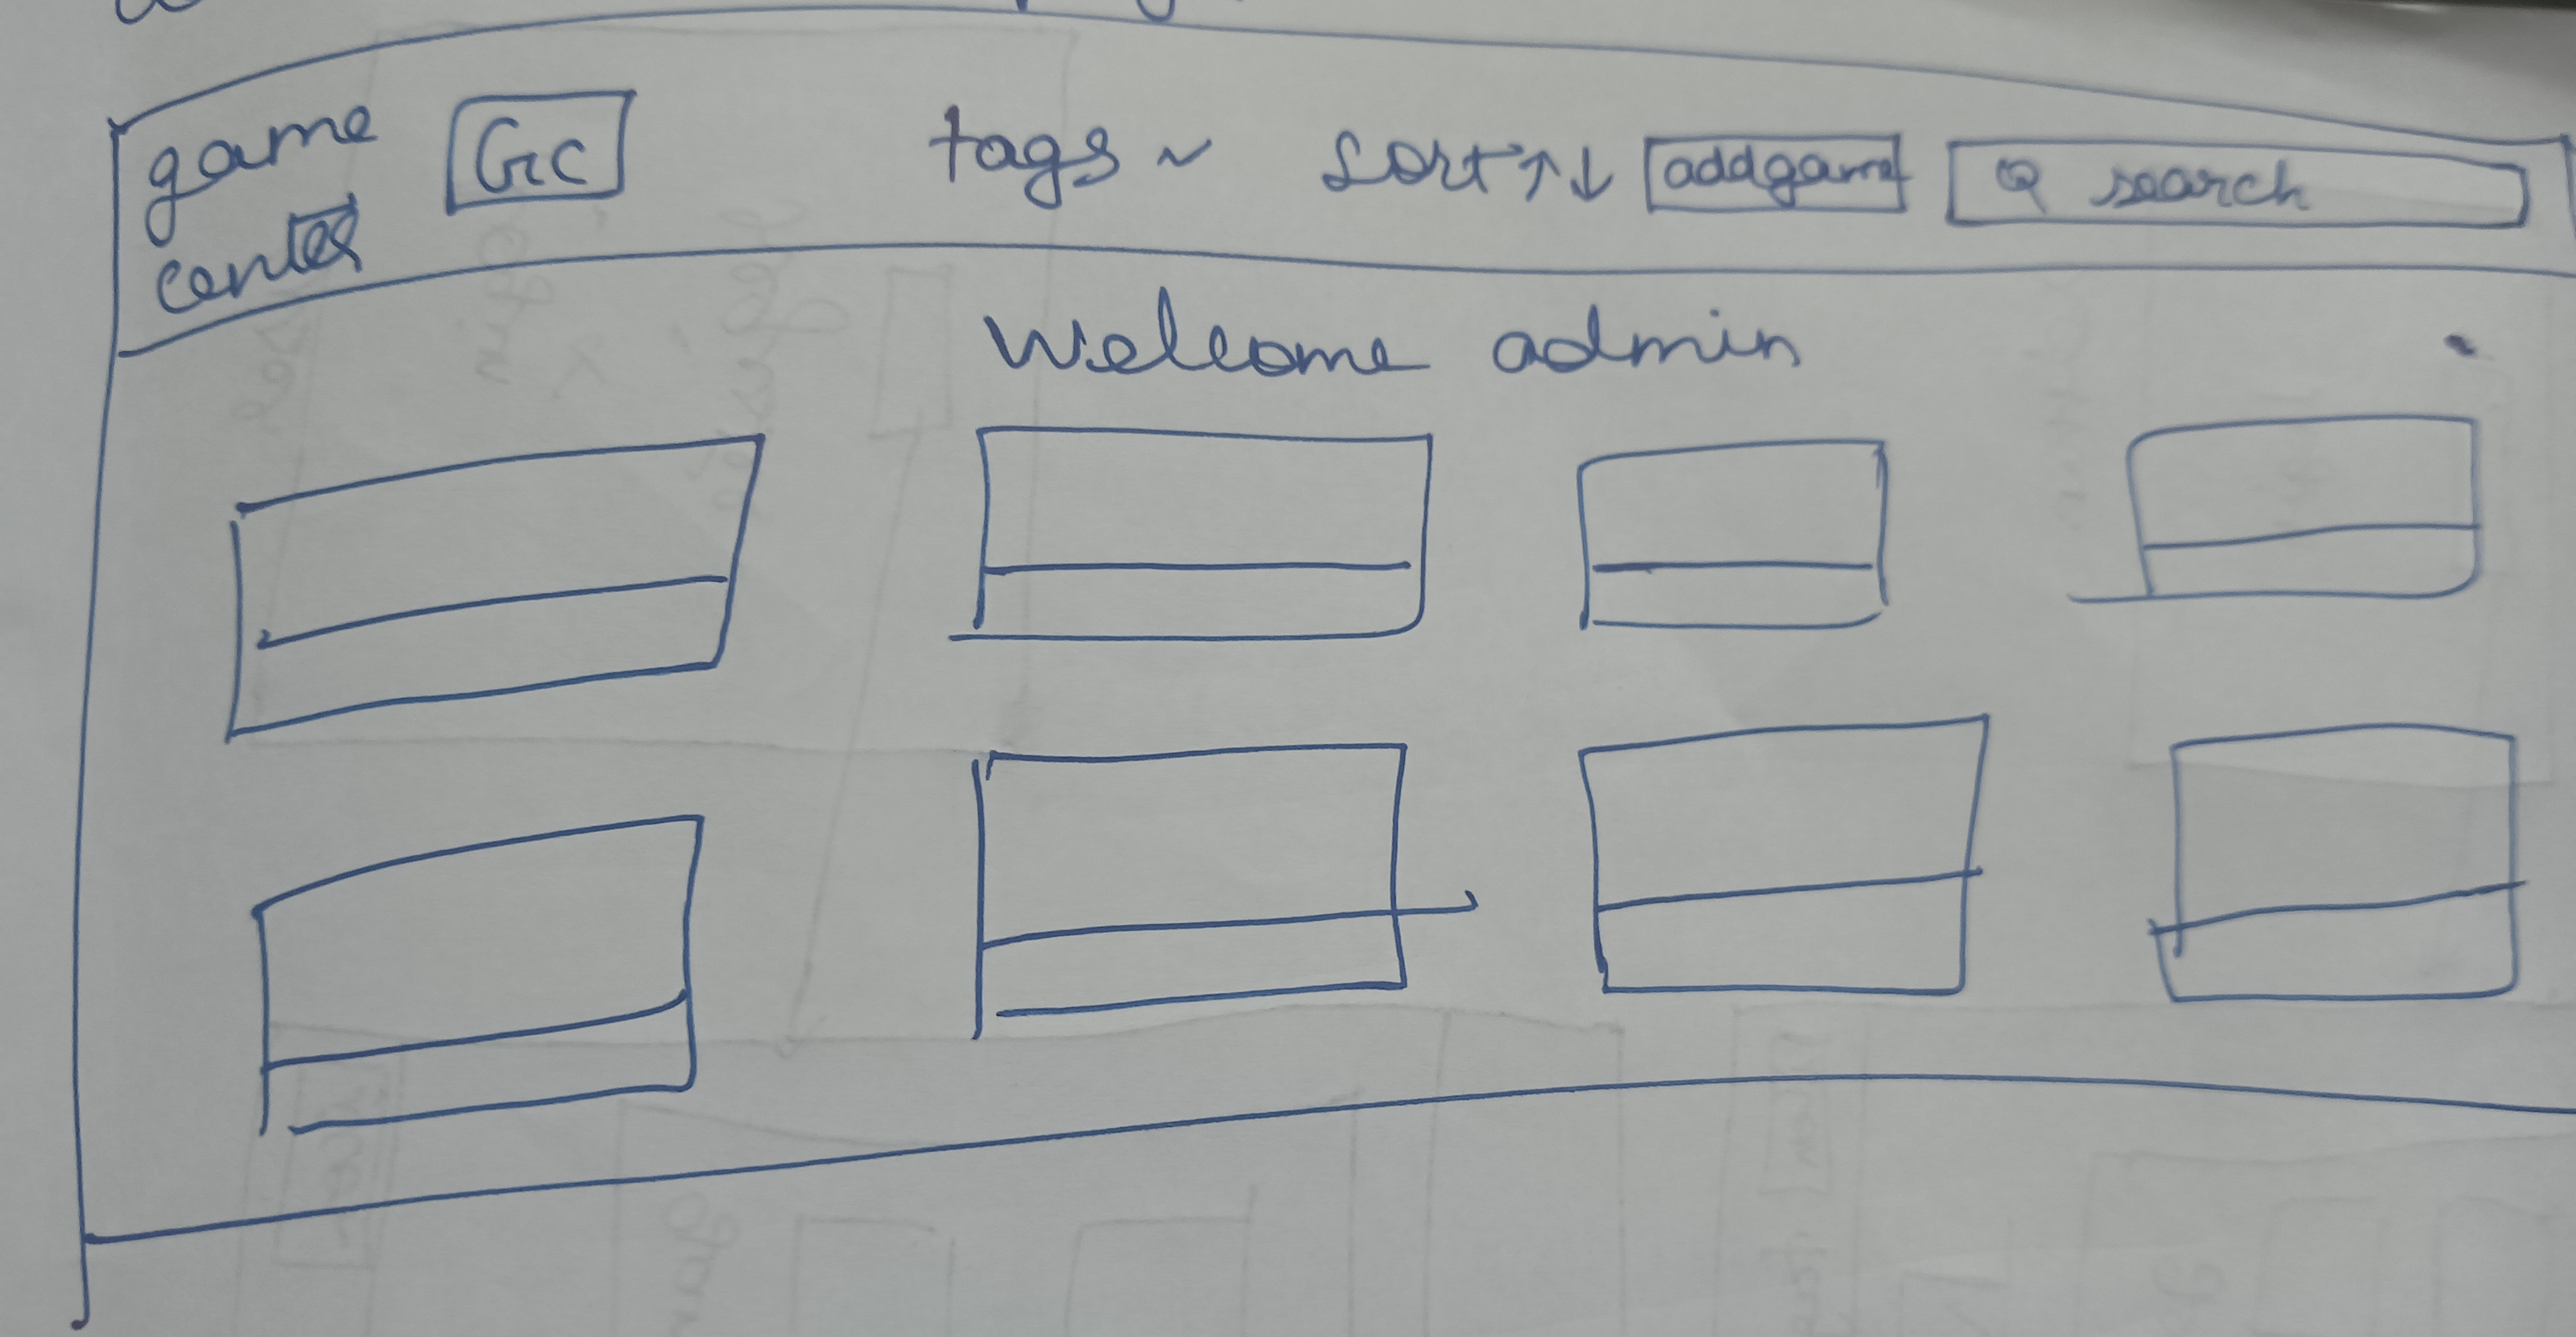 game
center
GC
tags ~ sort ↑↓ addgame search
Welcome admin